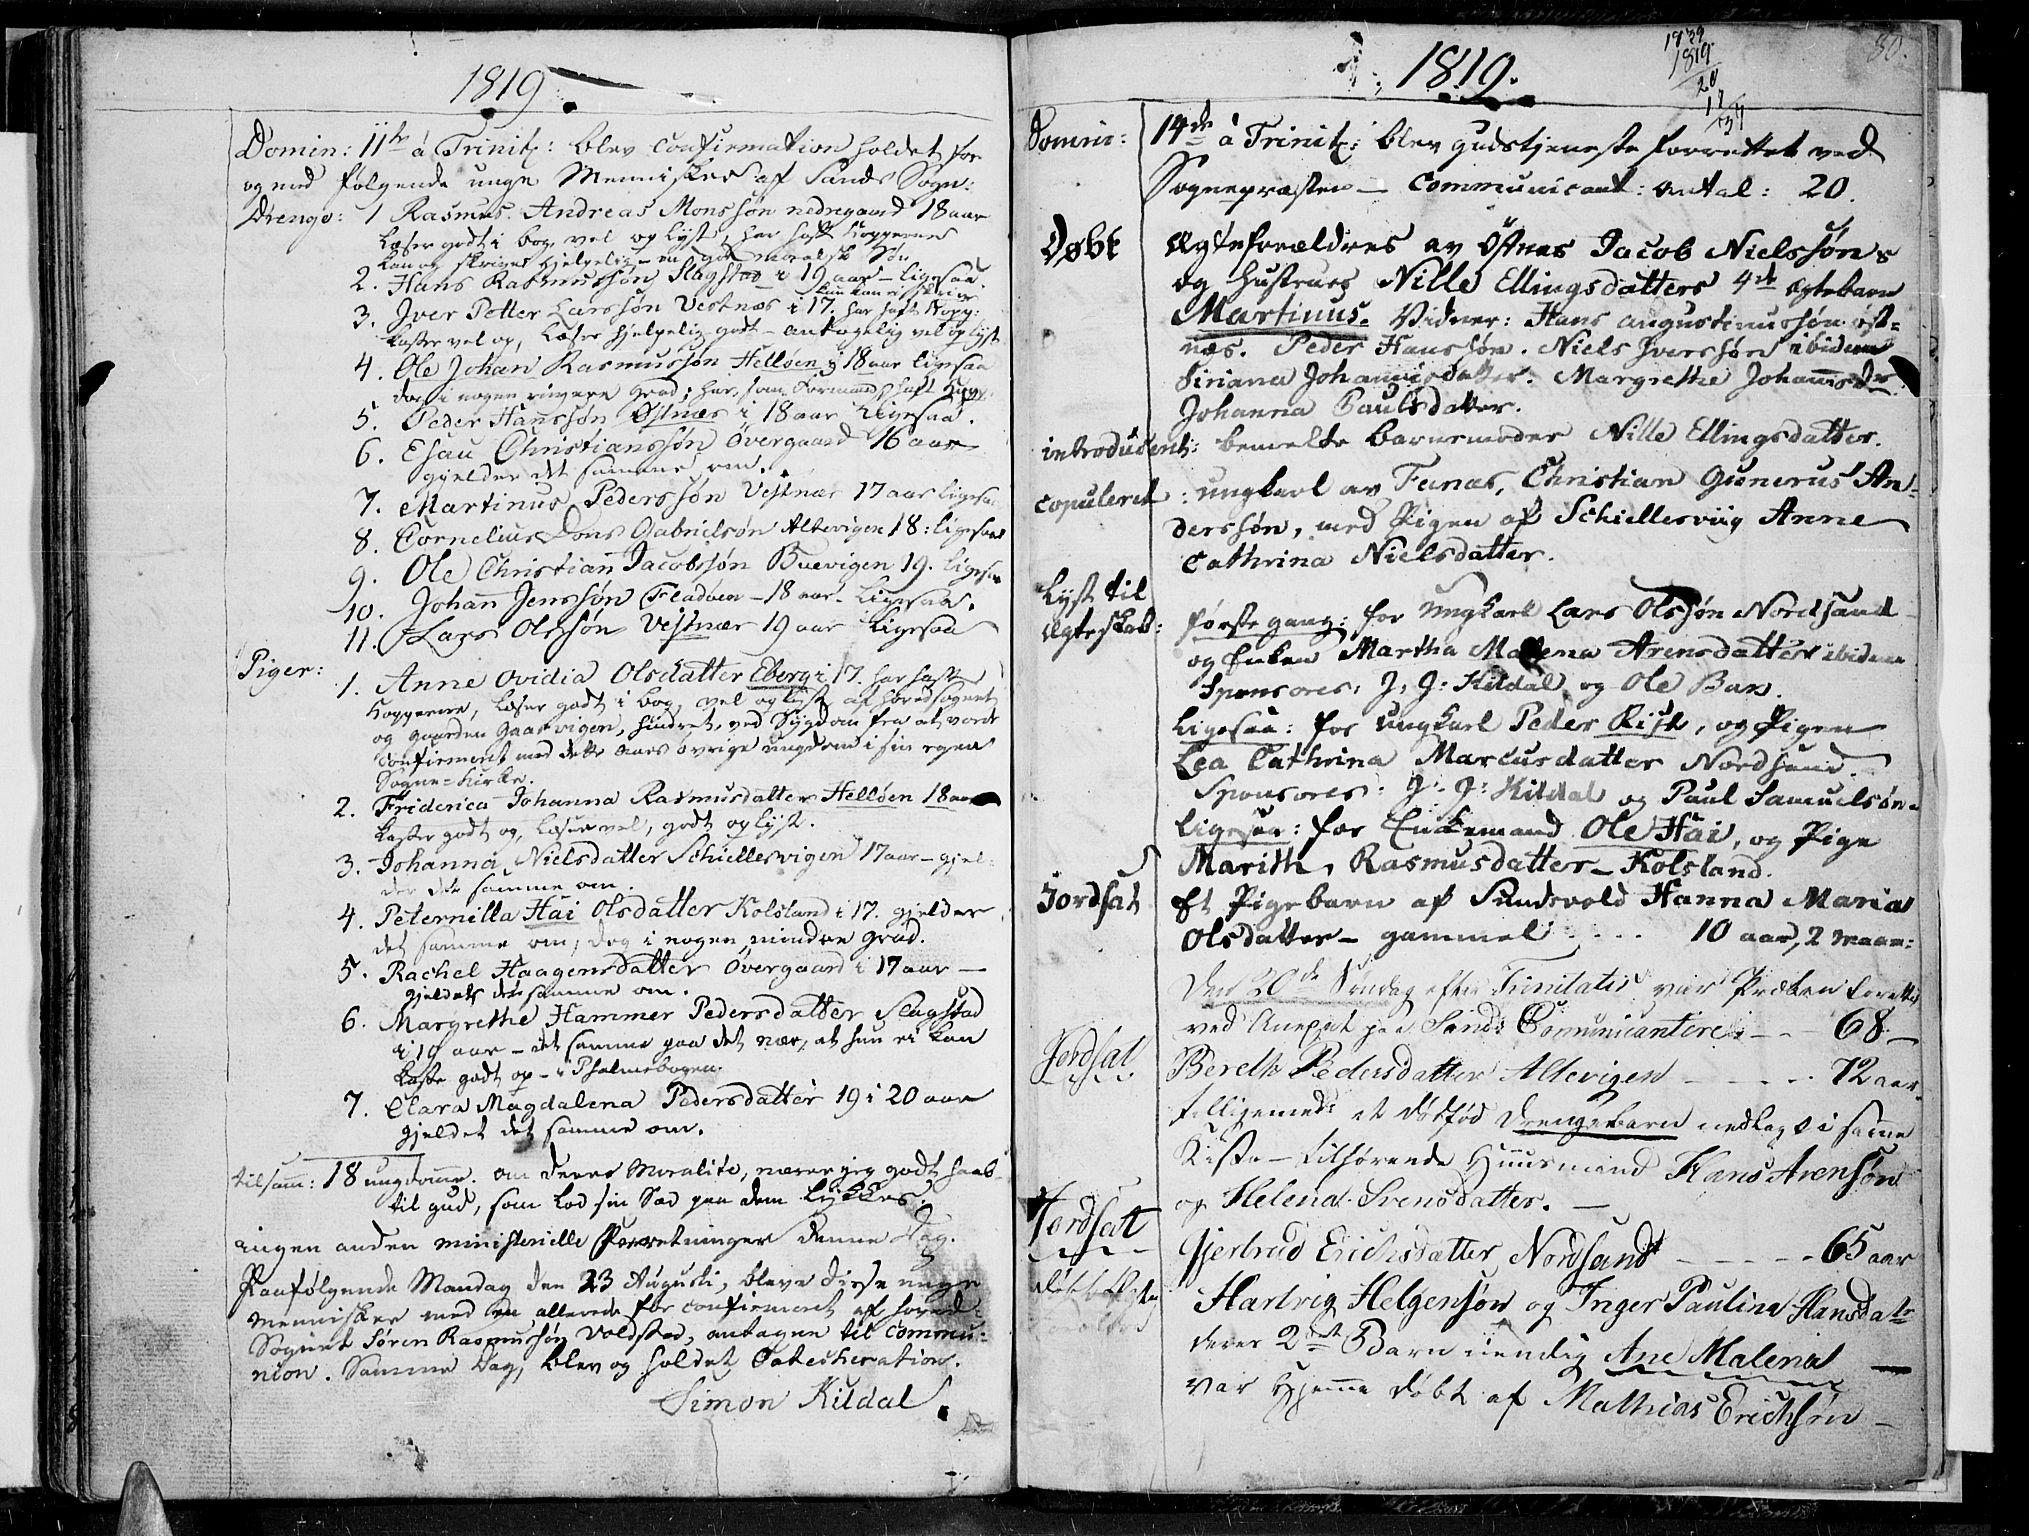 1819
Domin: 11te à Trinit: blev confirmation holdet for
og med følgende unge Mennisker af Sands Sogn:
Drenge: 1 Rasmus Andreas Monssøn nedregaard 18 aar
læser godt i bog, vel oplyst, har haft Kopperne
kan og skrive hjelpelig - en god moralsk Søn
2. Hans Rasmussøn Slagstad i 19 aar - ligesaa.
kun kan ei skrive
3. Iver Petter Larssøn Vestnæs i 17. har haft Kopp:
kaster vel op, læser hjelpelig godt - antagelig vel oplyst
4. Ole Johan Rasmussøn Helløen i 18 aar ligesaa
dog i nogen ringere grad; har, som Formand, haft Kopp:
5. Peder Hanssøn Østnæs i 18 aar ligesaa.
6. Esau Christianssøn Øvergaard 16 aar
gjelder det samme om.
7. Martinus Pederssøn Vestnær 17 aar ligesaa
8. Cornelius Dons Gabrielsøn Altevigen 18: ligesaa
9. Ole Christian Jacobssøn Buevigen 19. ligesaa
10. Johan Jenssøn Fladøen - 18 aar - ligesaa.
11. Lars Olssøn Vestnær 19 aar ligesaa
Piger:
1. Anne Ovidia Olsdatter Eberg i 17. har haft
Kopperne, læser godt i bog, vel oplyst af hovedsognet
og gaarden Gaasvigen, hindret, ved Sygdom fra at vorde
confirmeret med dette aars øvrige ungdom i sin egen
Sogne-Kirke.
2. Friderica Johanna Rasmusdatter Helløen 18 aar
kaster godt op, læser vel, godt oplyst.
3. Johanna Nielsdatter Schiellesvigen 17 aar - gjel-
der det samme om.
4. Peternilla Hai Olsdatter Kolsland i 17. gjelder
det samme om, dog i nogen mindre grad.
5. Rachel Haagensdatter Øvergaard i 17 aar -
gjeldets det samme om.
6. Margrethe Hammer Pedersdatter Slagstad
i 19 aar - det samme paa det nær, at hun ei kan
kaste godt op - i Psalmebogen.
7. Clara Magdalena Pedersdatter 19 i 20 aar
gjeldet det samme om.
tilsam: 18 ungdomme. om deres Moralite, nærer jeg godt haab
til gud, som lod sin Sæd paa dem lykkes.
ingen anden ministerielle Forretninger denne Dag.
Paafølgende Mandag den 23 Augusti, bleve disse unge
mennisker med en allerede før confirmeret af hoved-
Sognet Søren Rasmussøn Voldsted, antagen til commu-
nion. Samme Dag, blev og holdet Catechesation.
Simon Kildal.
80.
1819.
1839
1819
20
Domin: 14de à Trinit: blev gudstjeneste forrettet ved
Sognepræsten - Communicant: antal: 20.
Døbt Ægteforældres av Østnæs Jacob Nielssøns
og Hustrues Nille Ellingsdatters 4de ægtebarn
Martinus. Vidner: Hans Augustinussøn øst-
næs. Peder Hanssøn. Niels Iverssøn ibidem
Siriana Johannisdatter. Margrethe Johannisdr
Johanna Paulsdatter.
introducent: bemelte barnemoder Nille Ellingsdatter.
copuleret: ungkarl av Funæs, Christian Gunerus An-
derssøn, med Pigen af Schiellesviig Anne
Cathrina Nielsdatter.
Lyst til
Ægteskab: første gang: for Ungkarl Lars Olssøn Nordsand
og Enken Martha Malena Arensdatter ibidem
Sponsores: J. J: Kildal og Ole Ban.
Ligesaa: for ungkarl Peder Rist, og Pigen
Lea Cathrina Marcusdatter Nordsund.
Sponsores: J. J: Kildal og Paul Samuelsøn.
ligesaa: for Enkemand Ole Hai, og Pige
Marith Rasmusdatter - Kolsland.
Jordsat Et Pigebarn af Sundsvold Hanna Maria
Olsdatter - gammel . . . . 10 aar, 2 maan:
Den 20de Søndag efter Trinitatis var Præken forrettet
ved Anexet paa Sand: Comunicantere: - - 68 -
Jordsat Bereth Pedersdatter Altevigen - - - - 72 aar
Tilligemed et dødfød Drengebarn nedlagt i same
Kiste - tilhørende Huusmand Hans Arensøn
og Helena Svensdatter. -
Jordsat
Gjertrud Erichsdatter Nordsand - - - - - 65 aar
Hartvig Helgensøn og Inger Paulina Hansdatr
deres 2det Barn nemlig Ane Malena
var Hjemme døbt af Mathias Erichsøn -